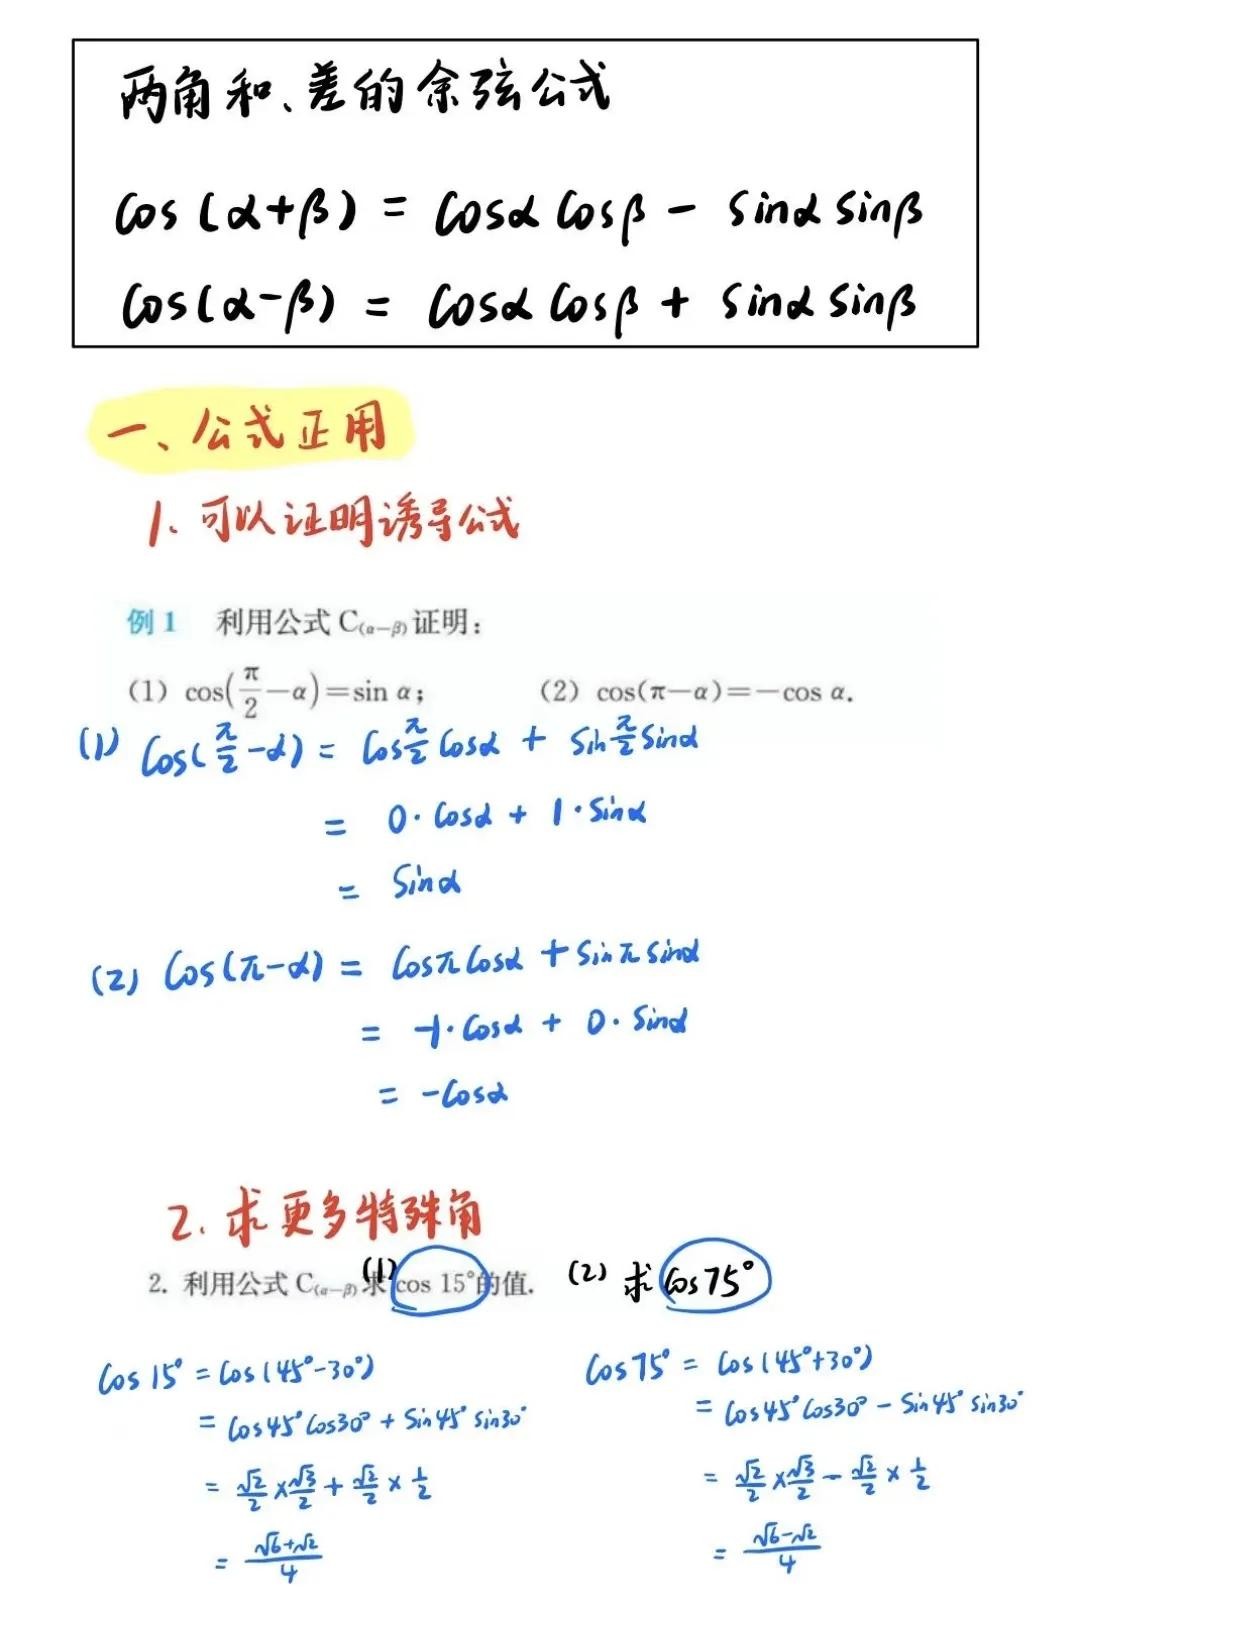 两角和、差的余弦公式
cos(α+β) = cosα cosβ - sinα sinβ
cos(α-β) = cosα cosβ + sinα sinβ
一、公式正用
1、可以证明诱导公式
例1 利用公式 C(α-β) 证明：
(1) cos(π/2-α)=sin α； (2) cos(π-α)=-cos α.
(1) cos(π/2-α) = cosπ/2 cosα + sinπ/2 sinα
= 0·cosα + 1·sinα
= sinα
(2) cos(π-α) = cosπ cosα + sinπ sinα
= -1·cosα + 0·sinα
= -cosα
2. 求更多特殊角
2. 利用公式 C(α-β) (1) 求 cos 15°的值. (2) 求 cos75°
cos15° = cos(45°-30°)
= cos45°cos30° + sin45°sin30°
= √2/2×√3/2+√2/2×1/2
= (√6+√2)/4
cos75° = cos(45°+30°)
= cos45°cos30° - sin45°sin30°
= √2/2×√3/2-√2/2×1/2
= (√6-√2)/4